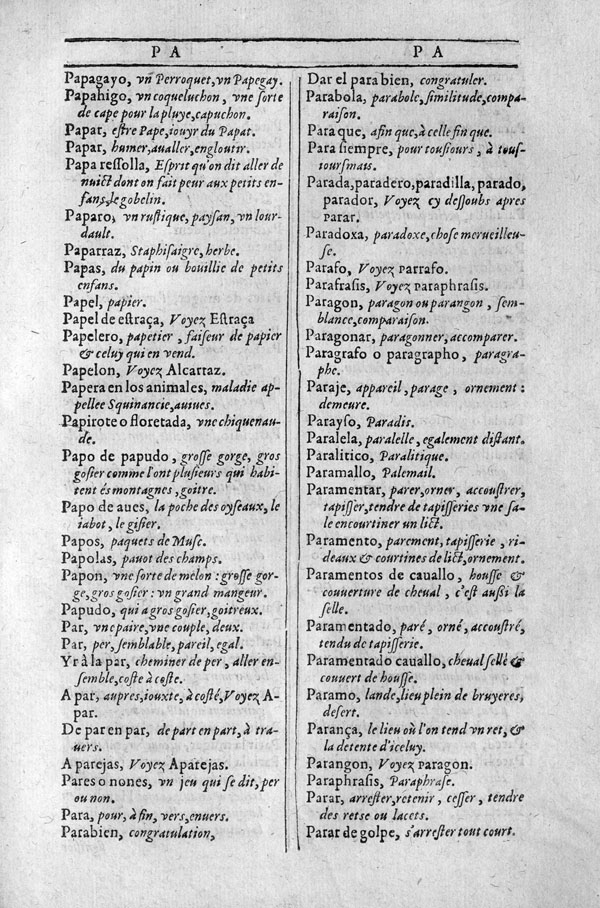 PA
Papagayo, vn Perroquet, vn Papegay.
Papahigo, vn coqueluchon, vne sorte
de cape pour la pluye, capuchon.
Papar, estre Pape, iouyr du Papat.
Papar, humer, aualler, engloutir.
Papa ressolla, Esprit qu'on dit aller de
nuict dont on fait peur aux petits en-
fans, le gobelin.
Paparo, vn rustique, paysan, vn lour-
dault.
Paparraz, Staphisaigre, herbe.
Papas, du papin ou bouillie de petits
enfans.
Papel, papier.
Papel de estraça, Voyez Estraça
Papelero, papetier, faiseur de papier
& celuy qui en vend.
Papelon, Voyez Alcarraz.
Papera en los animales, maladie ap-
pellee Squinancie, auiues.
Papirote o floretada, vne chiquenau-
de.
Papo de papudo, grosse gorge, gros
gosier comme l'ont plusieurs qui habi-
tent és montagnes, goitre.
Papo de aues, la poche des oyseaux, le
iabot, le gisier.
Papos, paquets de Musc.
Papolas, pauot des champs.
Papon, vne sorte de melon: grosse gor-
ge, gros gosier: vn grand mangeur.
Papudo, qui a gros gosier, goitreux.
Par, vne paire, vne couple, deux.
Par, per, semblable, pareil, egal.
Yr à la par, cheminer de per, aller en-
semble, coste à coste.
A par, aupres, iouxte, à costé, Voyez A-
par.
De par en par, de part en part, à tra-
uers.
A parejas, Voyez Aparejas.
Pares o nones, vn jeu qui se dit, per
ou non.
Para, pour, à fin, vers, enuers.
Parabien, congratulation,
PA
Dar el para bien, congratuler.
Parabola, parabole, similitude, compa-
raison.
Para que, afin que, à celle fin que.
Para siempre, pour tousiours, à tous-
toursmais.
Parada, paradero, paradilla, parado,
parador, Voyez cy dessoubs apres
parar.
Paradoxa, paradoxe, chose merueilleu-
se.
Parafo, Voyez Parrafo.
Parafrasis, Voyez Paraphrasis.
Paragon, paragon ou parangon, sem-
blance, comparaison.
Paragonar, paragonner, accomparer.
Paragrafo o paragrapho, paragra-
phe.
Paraje, appareil, parage, ornement:
demeure.
Parayso, Paradis.
Paralela, paralelle, egalement distant.
Paralitico, Paralitique.
Paramallo, Palemail.
Paramentar, parer, orner, accoustrer,
tapisser, tendre de tapisseries vne sa-
le encourtiner un lict.
Paramento, parement, tapisserie, ri-
deaux & courtines de lict, ornement.
Paramentos de cauallo, housse &
couuerture de cheual, c'est aussi la
selle.
Paramentado, paré, orné, accoustré,
tendu de tapisserie.
Paramentado cauallo, cheual sellé &
couuert de housse.
Paramo, lande, lieu plein de bruyeres,
desert.
Parança, le lieu où l'on tend vn ret, &
la detente d'iceluy.
Parangon, Voyez Paragon.
Paraphrasis, Paraphrase.
Parar, arrester, retenir, cesser, tendre
des retse ou lacets.
Parar de golpe, s'arrester tout court.